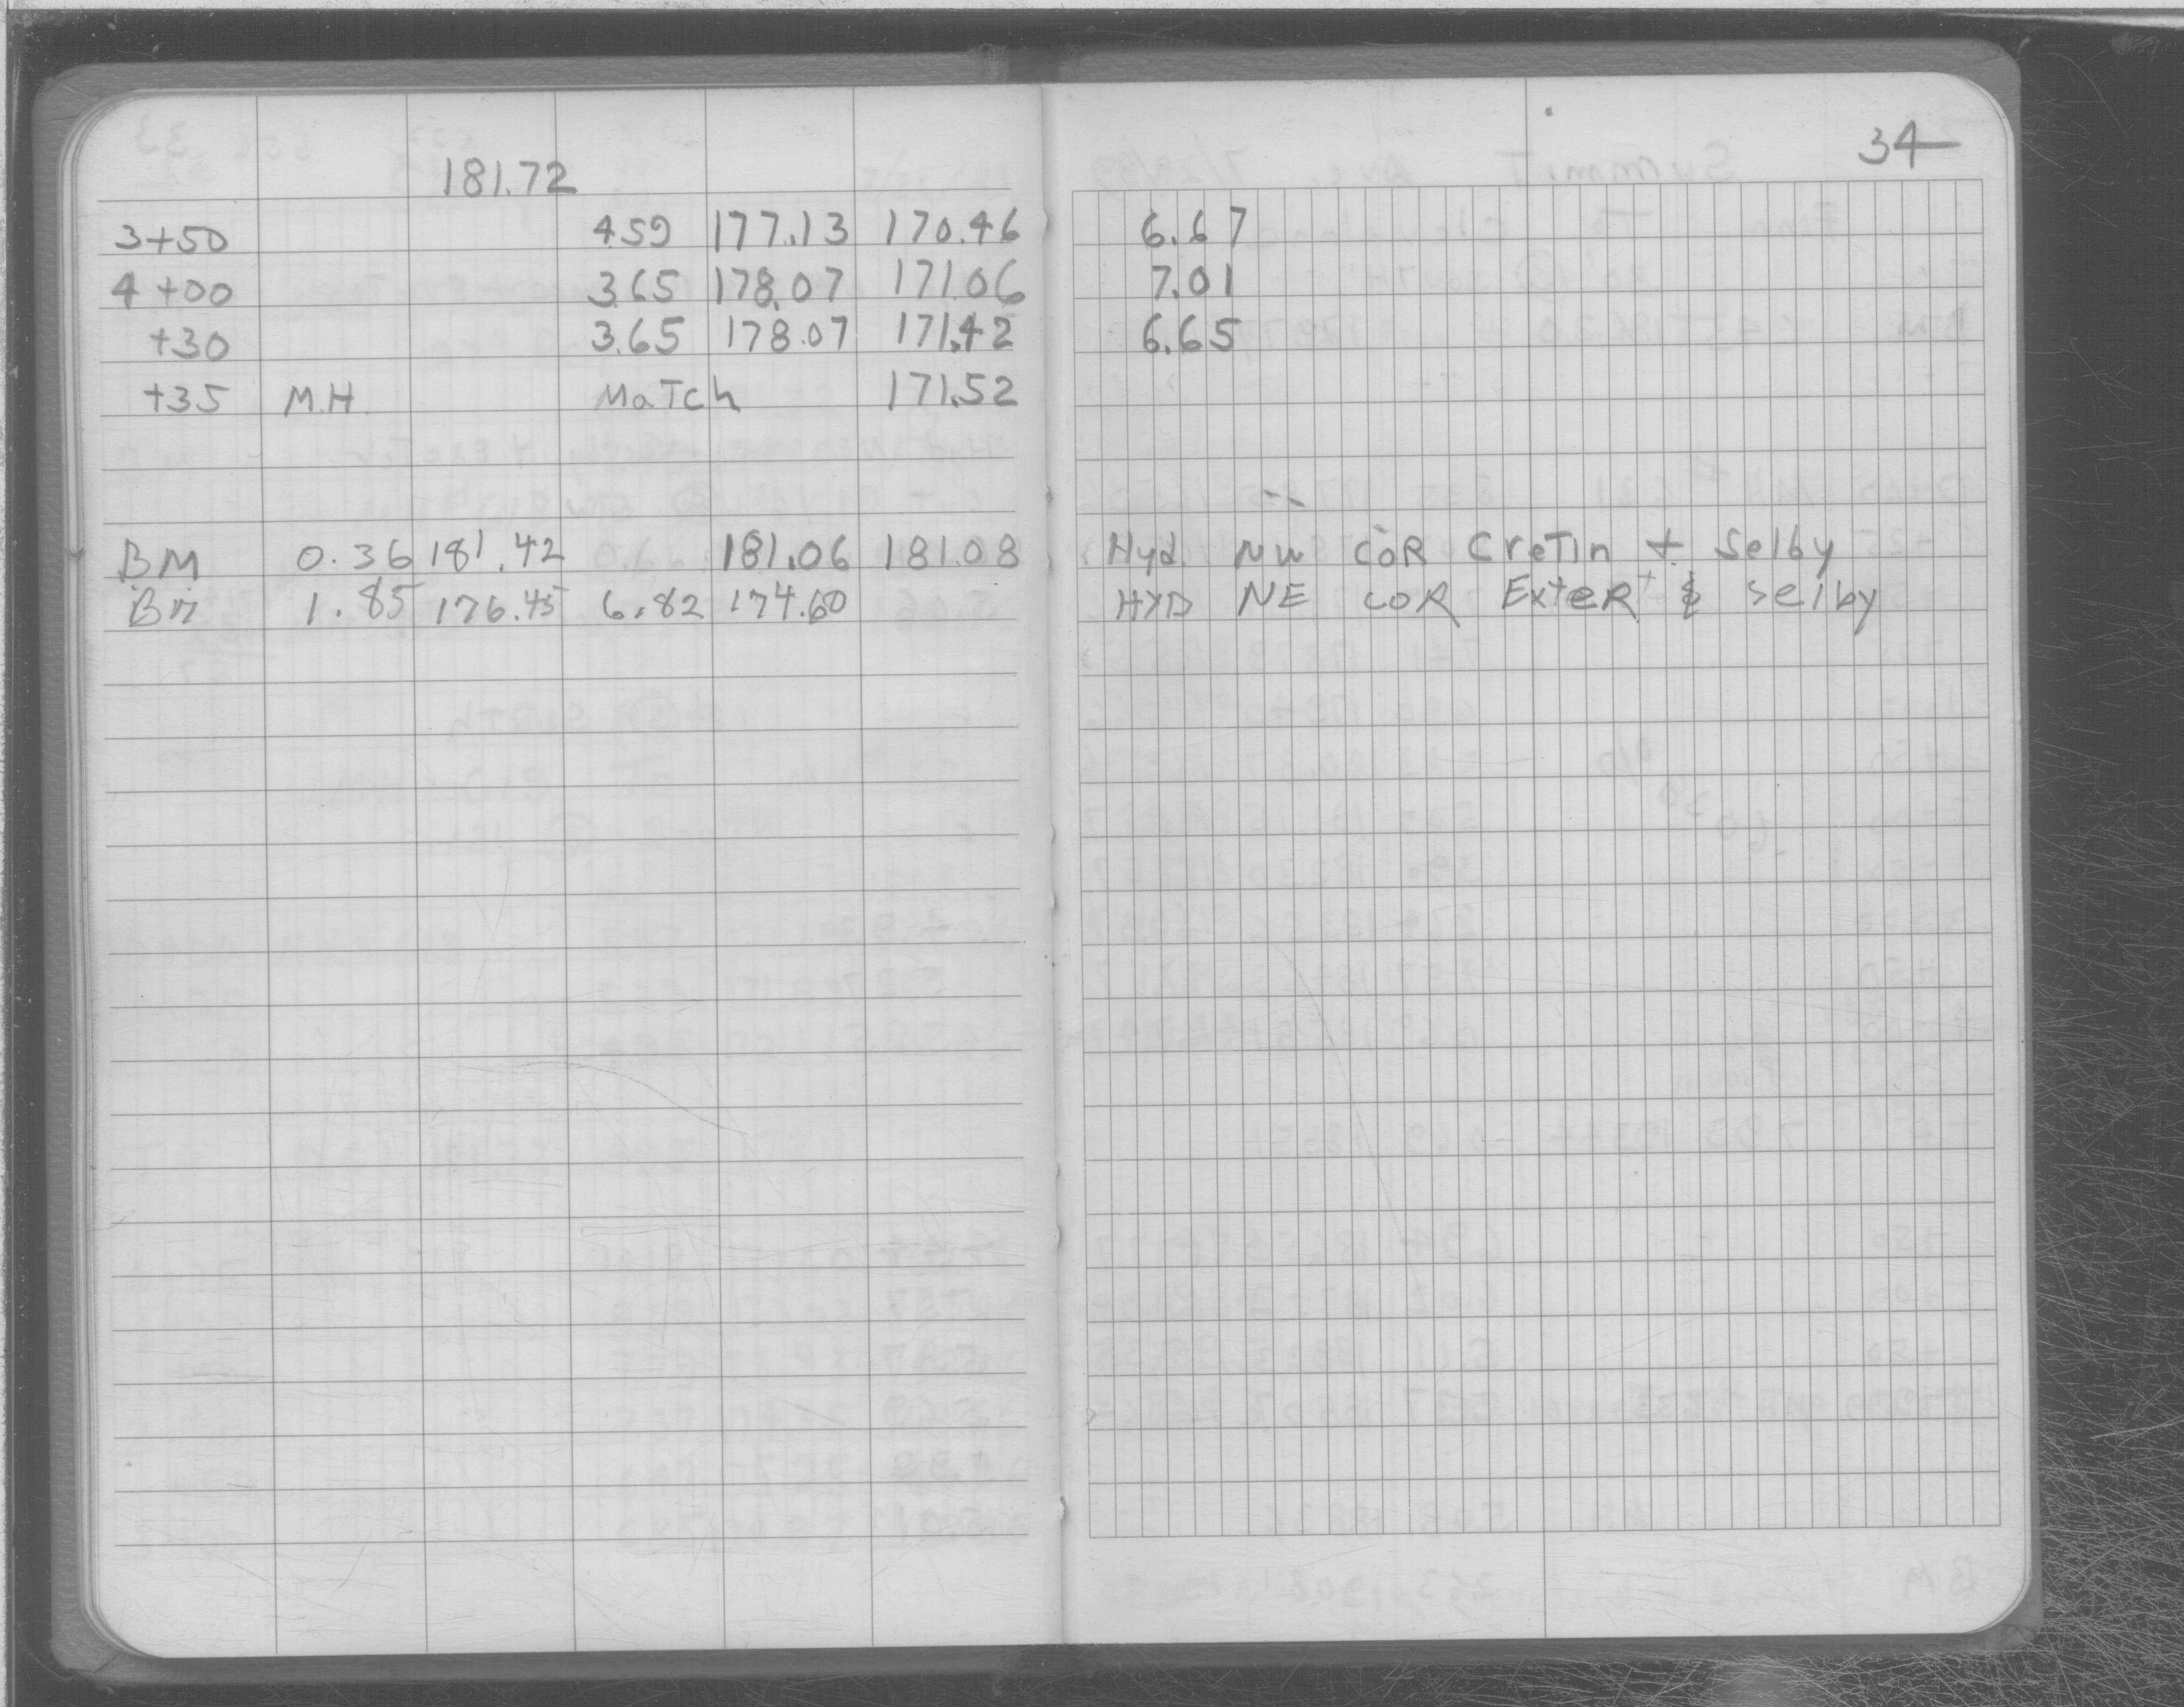 34
181.72
3+50 4.59 177.13 170.46 6.67
4+00 3.65 178.07 171.06 7.01
+30 3.65 178.07 171.42 6.65
+35 M.H. MaTch 171.52
BM 0.36 181.42 181.06 181.08 Hyd. NW COR CreTin + Selby
BM 1.85 176.45 6.82 174.60 HYD NE COR ExteR & Selby